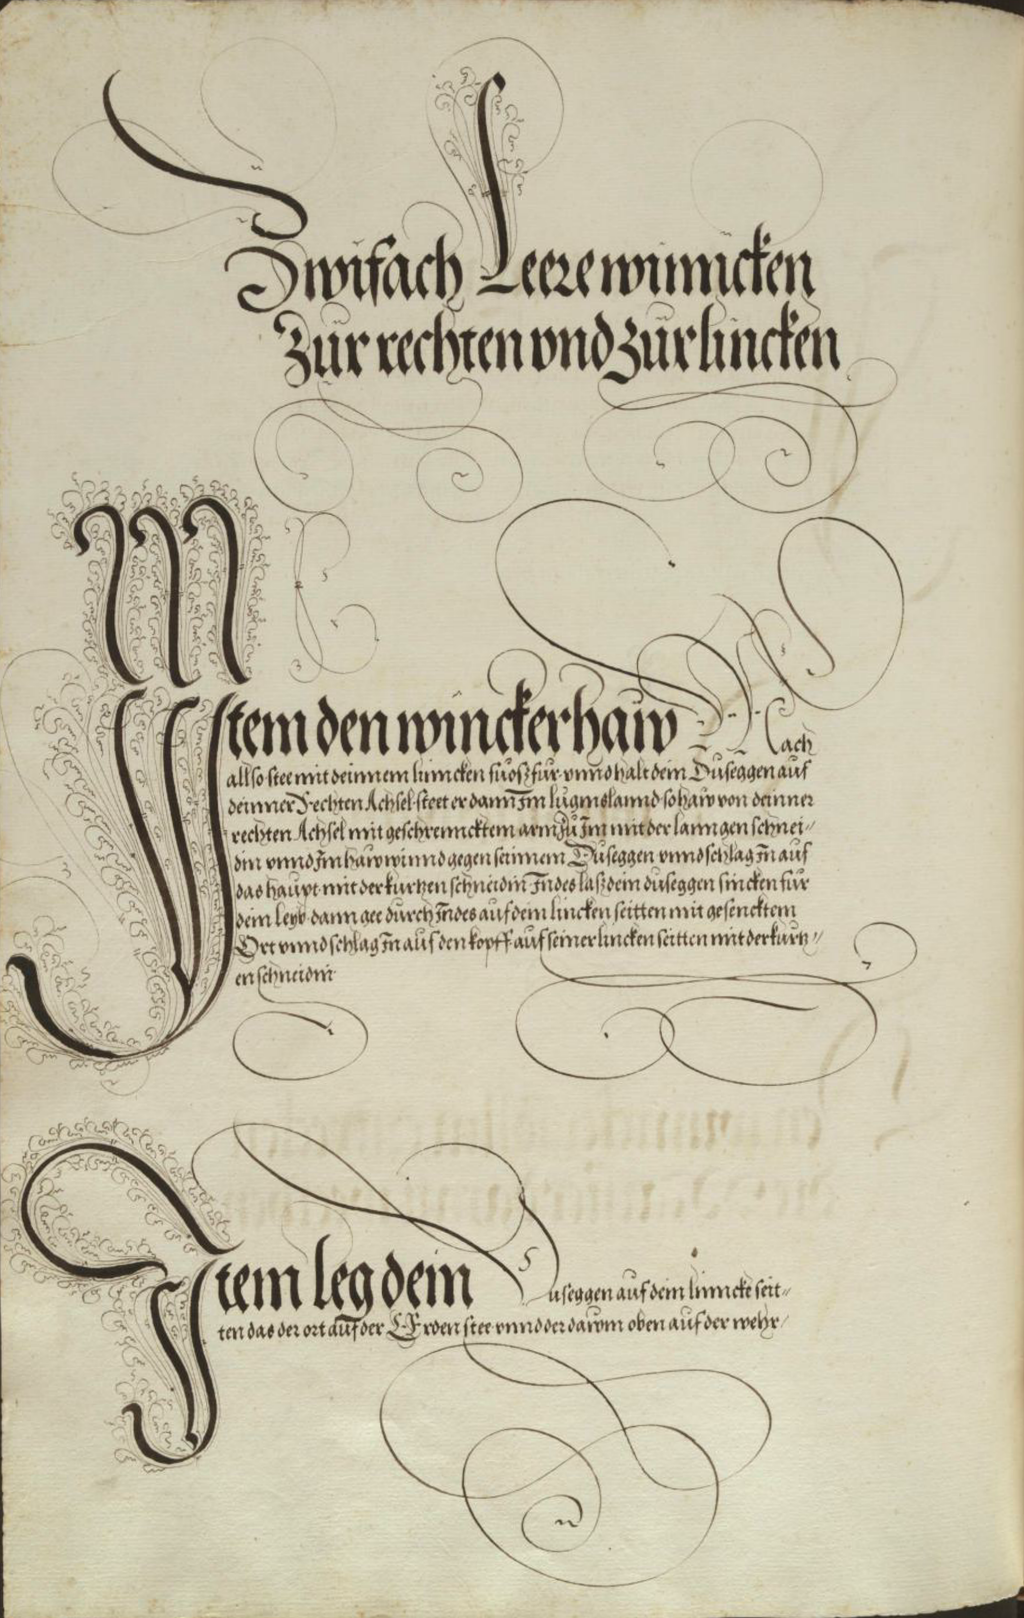 Zwifach Leere winncken
Zur rechten vnd zur lincken
M
Item den winckerhaw Nach
allso stee mit deinnem linncken fuosz fur vnnd halt dein Duseggen auf
deinner Rechten Achsel steet er dann Im luginslannd so haw von deinner
rechten Achsel mit geschrenncktem arm zu Im mit der lanngen schnei-
din vnnd Im haw winnd gegen seinnem Duseggen vnnd schlag In auf
das haupt mit der kurtzen schneidin Indes lasz dein duseggen sincken fur
dein leyb dann gee durch Indes auf dein lincken seitten mit gesencktem
Ort vnnd schlag In auf den kopff auf seiner lincken seitten mit der kurtz-
en schneidin
Item leg dein Duseggen auf dein linncke seit-
ten das der ort auf der Erden stee vnnd der dawm oben auf der wehr